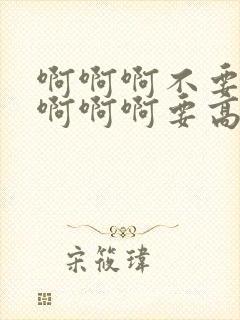 啊啊啊不要
啊啊啊要高
宋筱瑋